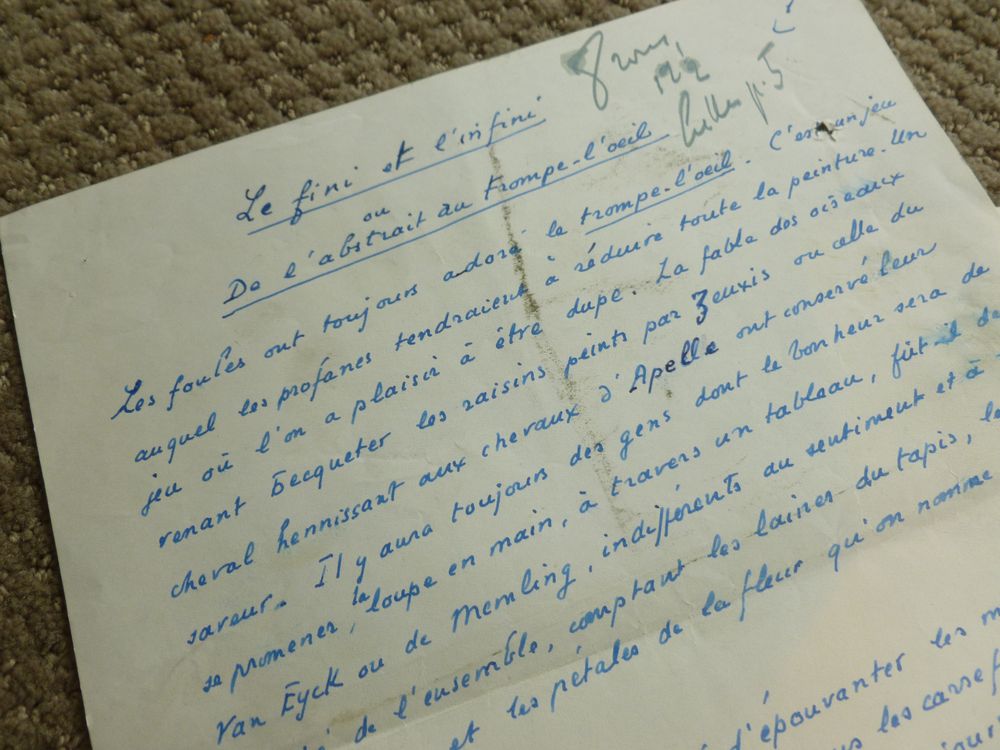 Le fini et l'infini
ou
De l'abstrait au trompe-l'oeil
Les foules ont toujours adoré le trompe-l'oeil. C'est un jeu
auquel les profanes tendraient à réduire toute la peinture. Un
jeu où l'on a plaisir à être dupe. La fable des oiseaux
venant becqueter les raisins peints par Zeuxis ou celle du
cheval hennissant aux chevaux d'Apelle ont conservé leur
saveur. Il y aura toujours des gens dont le bonheur sera de
se promener, la loupe en main, à travers un tableau, fût-il de
Van Eyck ou de Memling, indifférents au sentiment et à
de l'ensemble, comptant les laines du tapis,
et les pétales de la fleur qu'on nomme
d'épouvanter les
les